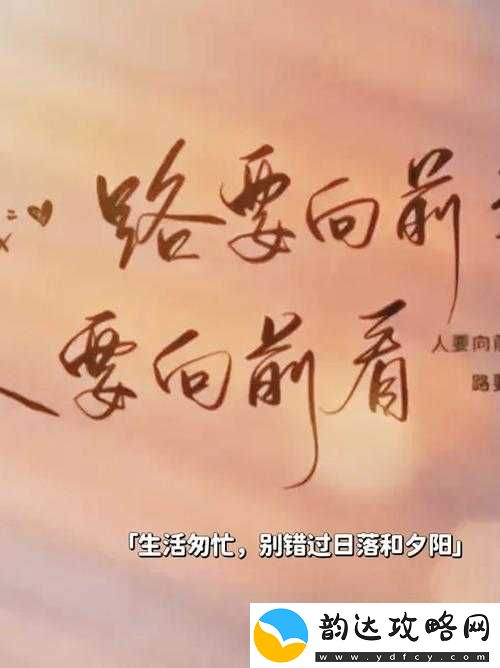 路要向前
人要向前看
人要向前
路要
「生活匆忙，别错过日落和夕阳」
韵达攻略网
www.ydfcy.com